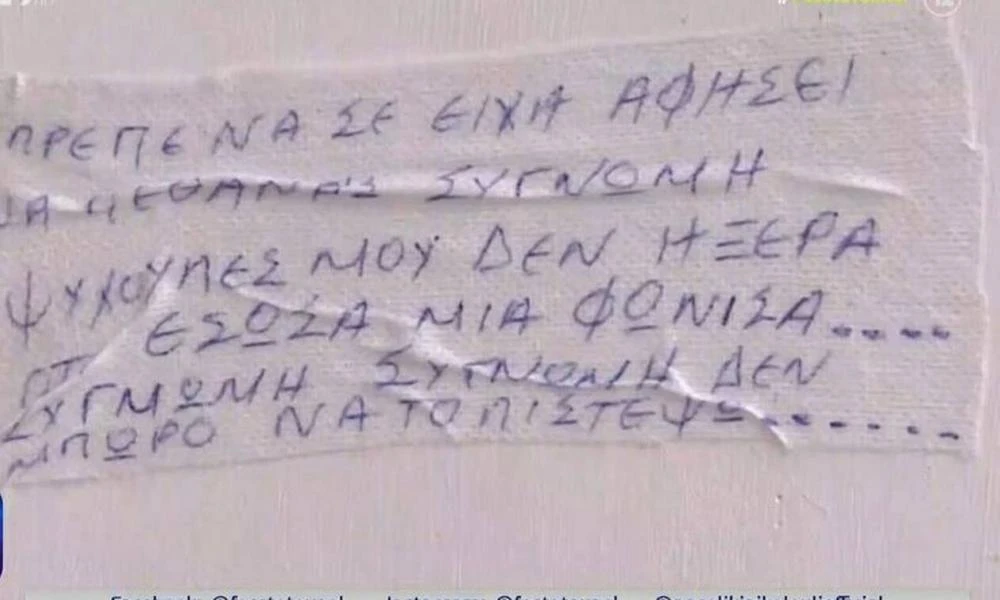 ΠΡΕΠΕ ΝΑ ΣΕ ΕΙΧΑ ΑΦΗΣΕΙ
ΝΑ ΠΕΘΑΝΕΙΣ ΣΥΓΝΩΜΗ
ΨΥΧΟΥΠΕΣ ΜΟΥ ΔΕΝ ΗΞΕΡΑ
ΕΣΩΣΑ ΜΙΑ ΦΩΝΙΣΑ....
ΣΥΓΜΩΜΗ ΣΥΓΝΩΜΗ ΔΕΝ
ΜΠΩΡΟ ΝΑ ΤΟ ΠΙΣΤΕΨΩ.......